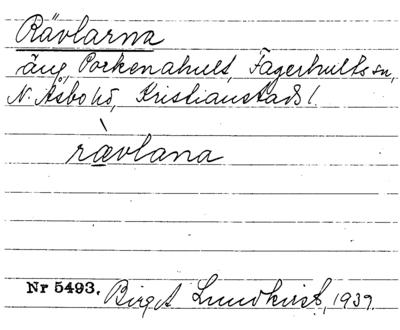 Rävlarna
äng, Porkenahult, Fagerhults sn,
N. Åsbo hd, Kristianstads l.
rævlana
Nr 5493. Birgit Lundkvist, 1939.